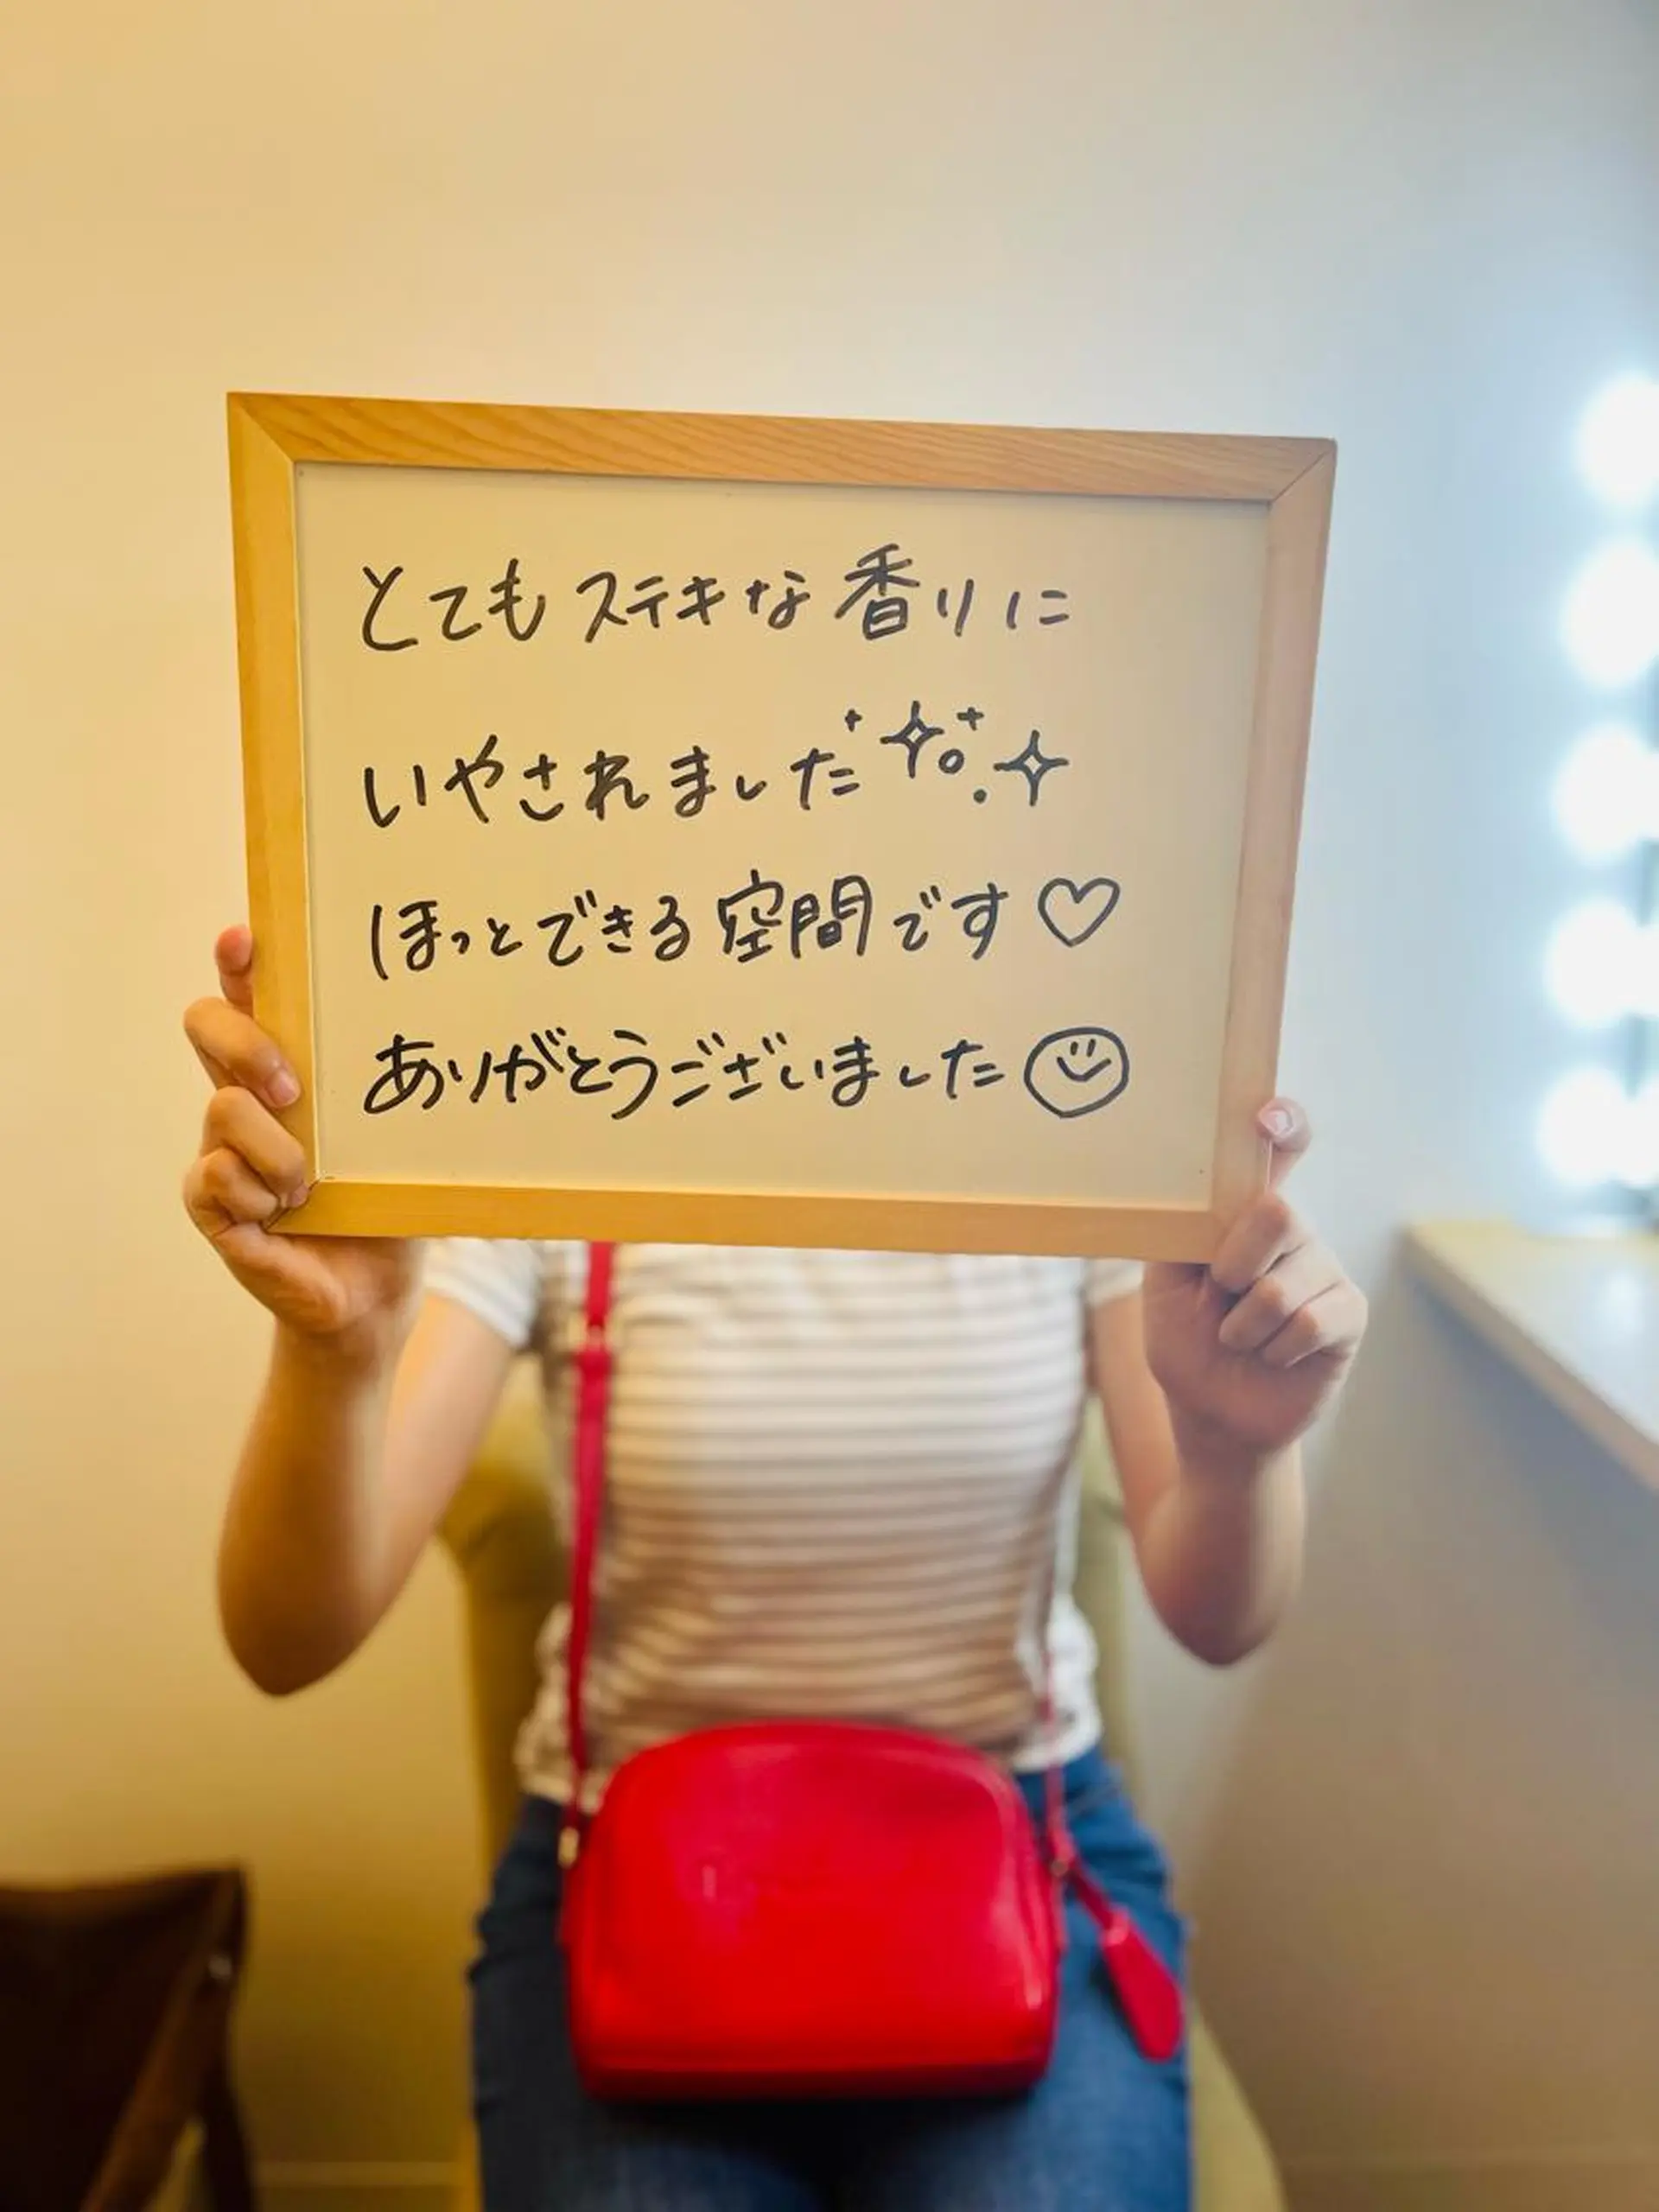 とても ステキな 香りに
いやされました
ほっとできる 空間です♡
ありがとうございました☺